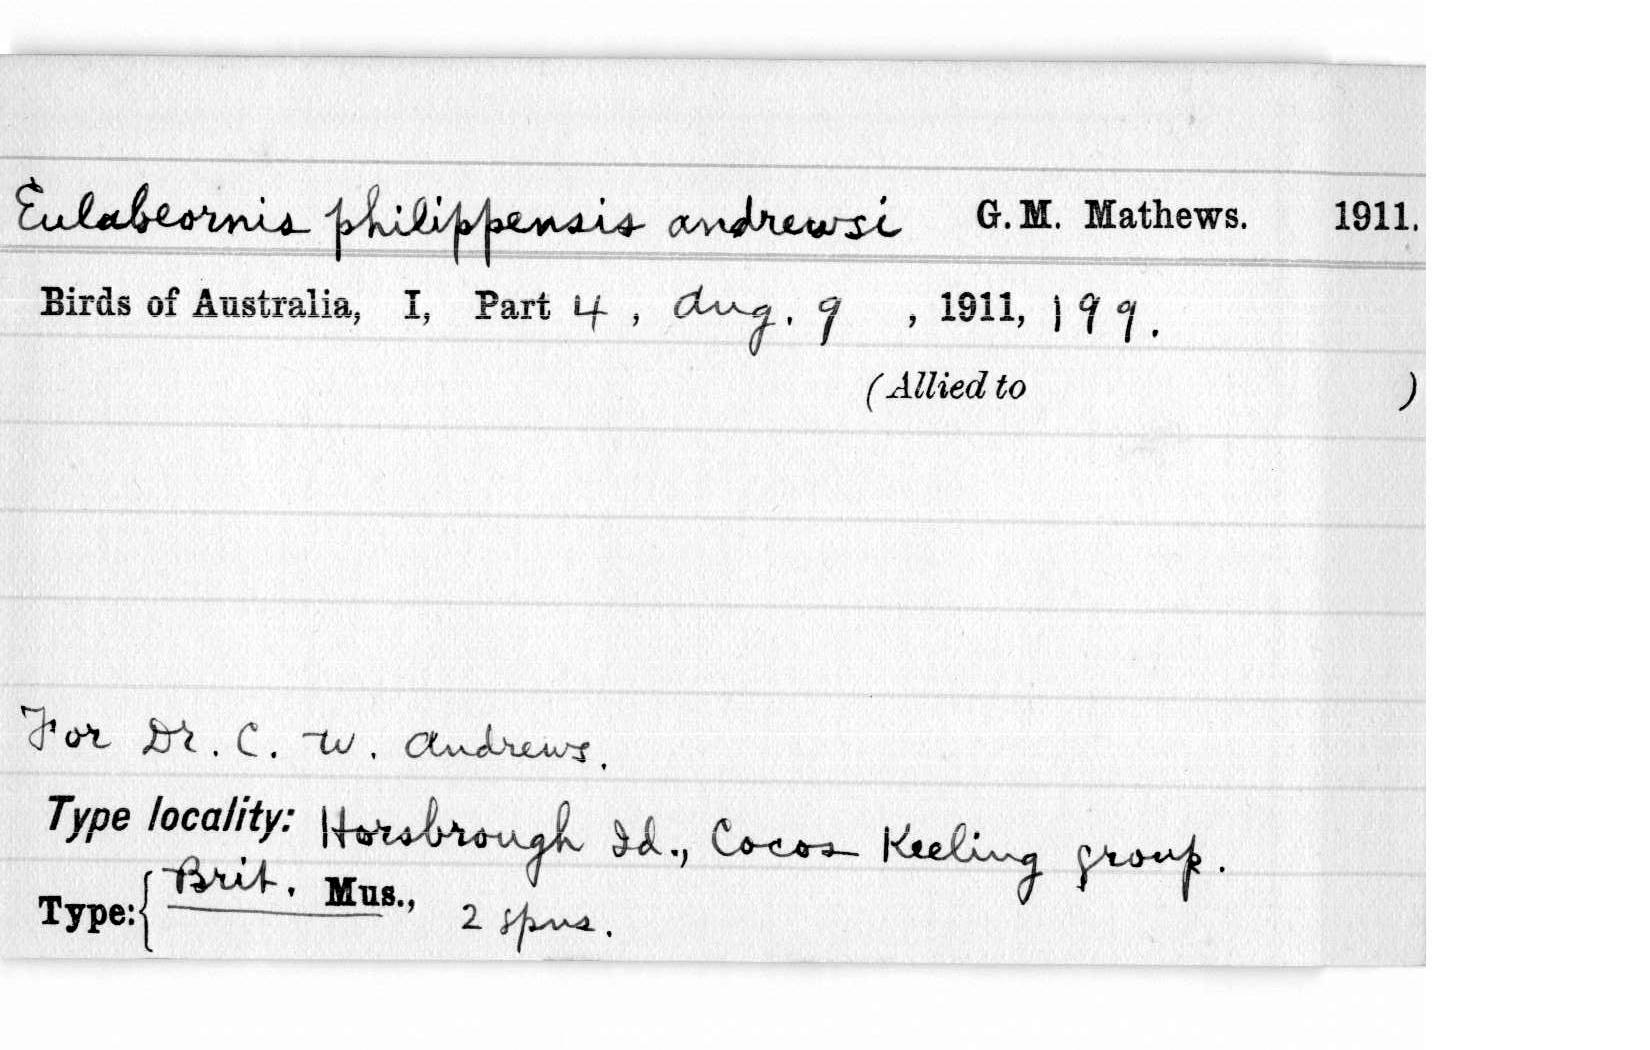 Eulabeornis philippensis andrewsi G. M. Mathews. 1911.
Birds of Australia, I, Part 4, Aug. 9, 1911, 199.
(Allied to )
For Dr. C. W. Andrews.
Type locality: Horsbrough Id., Cocos Keeling group.
Type: { Brit. Mus., 2 spns.